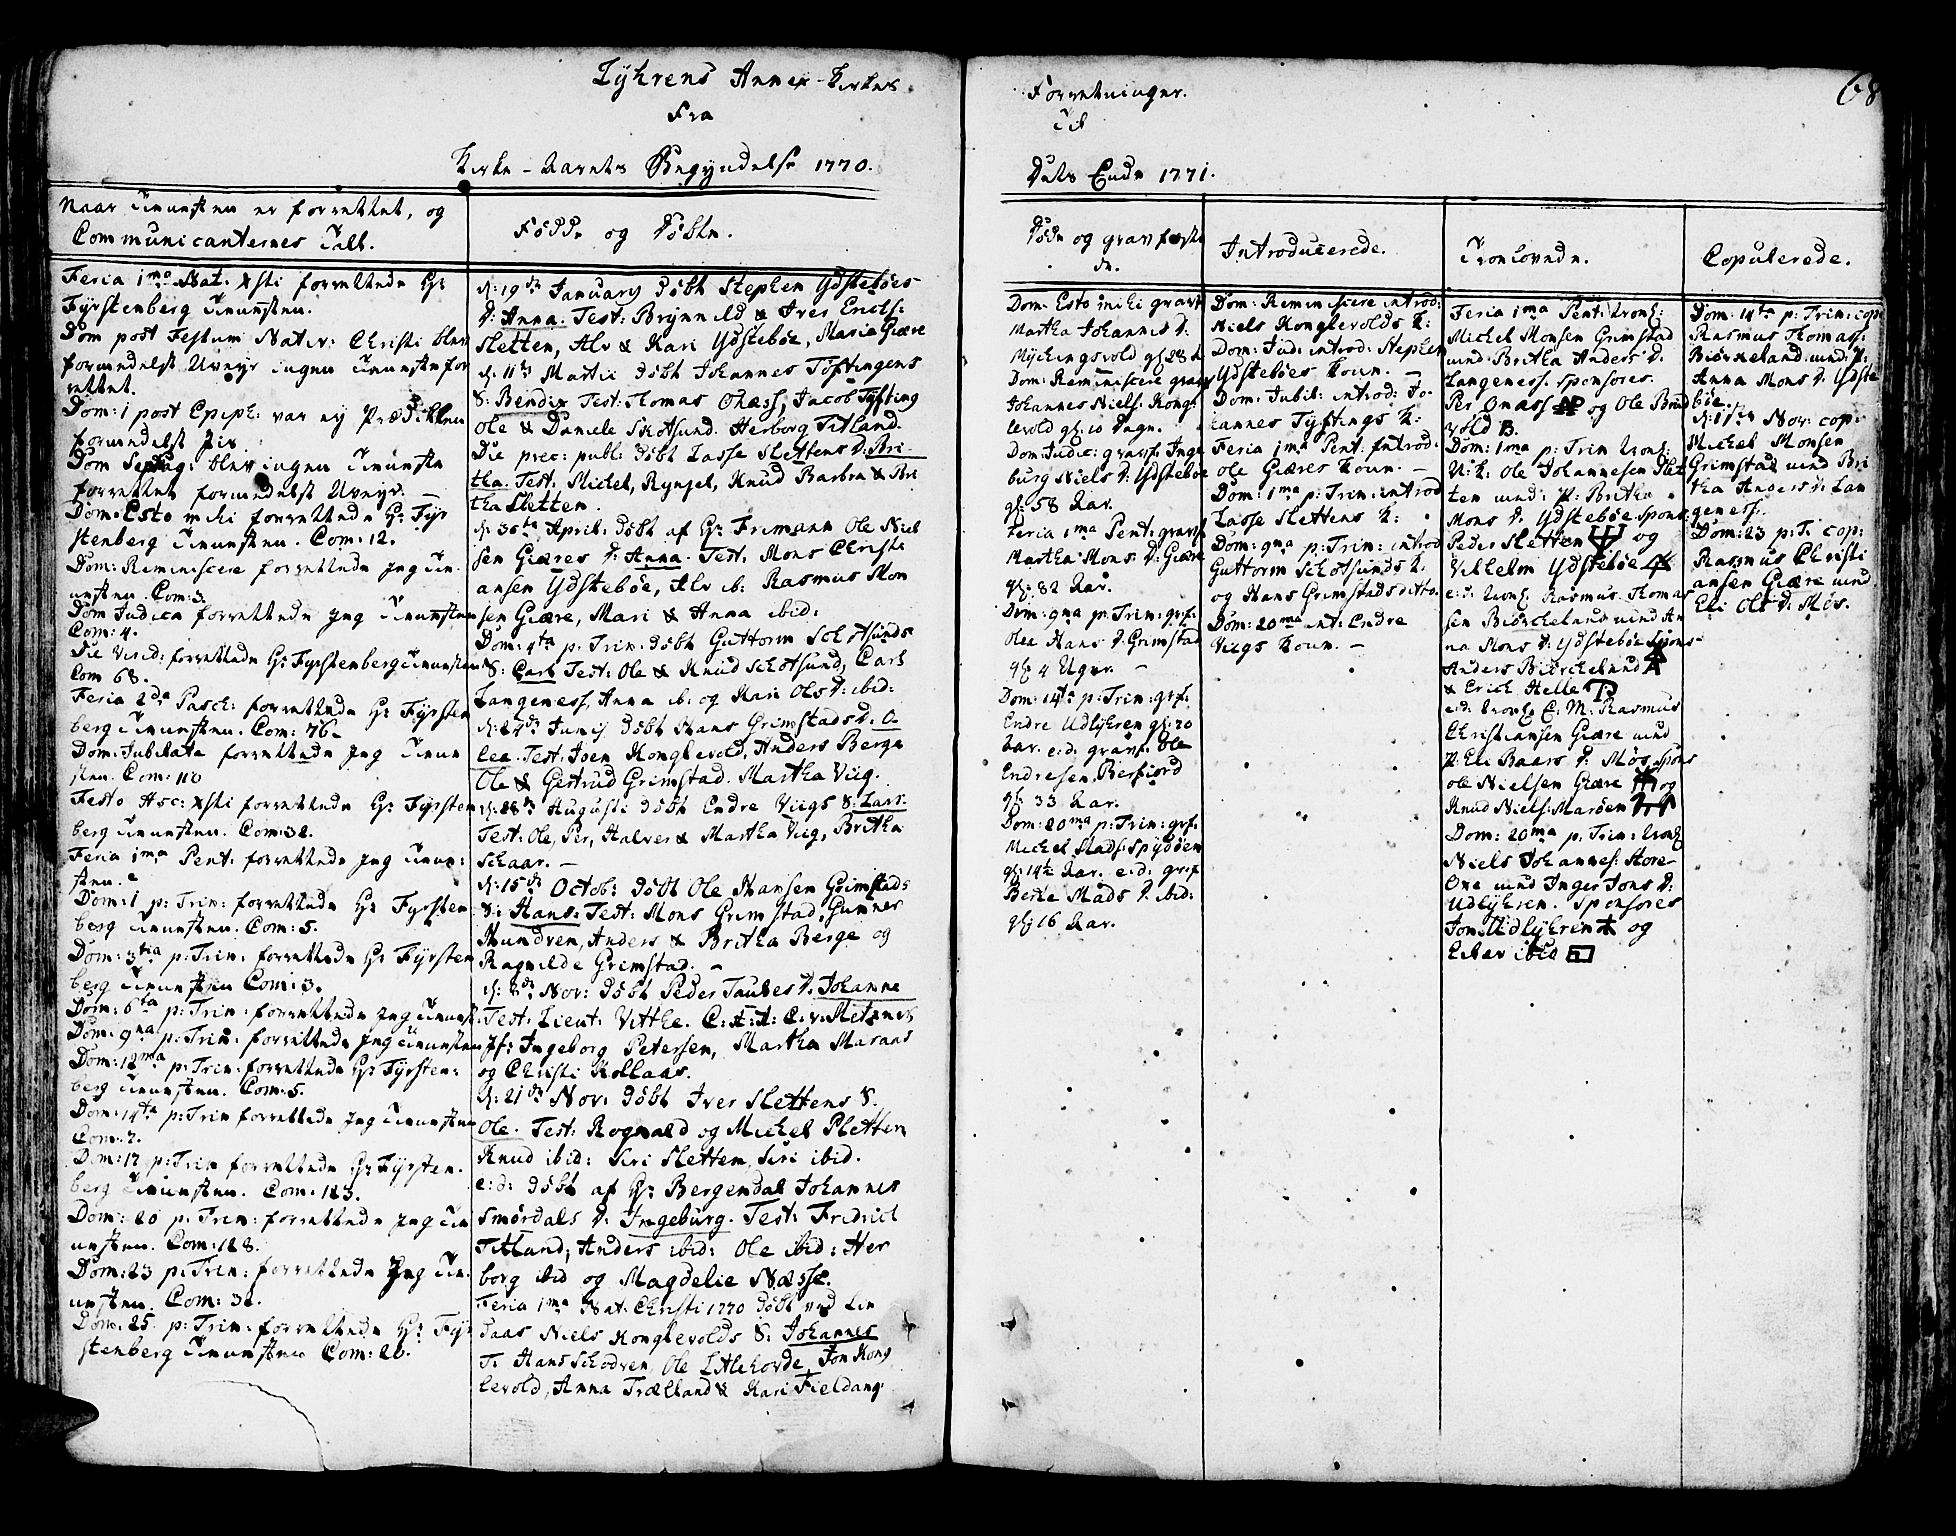 Lyhrens Annex-Kirkes
Fra
Kirke-Aarets Begyndelse 1770.
Naar Tienesten er forrettet, og
Communicanternes Tall.
Feria 1ma Nat: Xsti forrettede Hr
Fyrstenberg Tienesten.
Dom post Festum Nativ: Christi blev
formedelst Uveyr ingen Tieneste for
rettet.
Dom: 1 post Epiph: var ey Prædikken
formedelst
Dom Septuag: blev ingen Tieneste
forrettet formedelst Uveyr. —
Dom: Esto mihi forrettede Hr: Fyr
stenberg Tienesten. Com: 12.
Dom: Reminiscere forrettede Jeg Tie-
nesten. Com: 3.
Dom Judica forrettede Jeg Tienesten
Com: 4.
Die Virid: forrettede Hr: Fyrstenberg Tienesten
Com 68.
Feria 2da Pasch: forrettede Hr Fyrsten
berg Tienesten. Com: 76
Dom: Jubilate forrettede Jeg Tiene
sten. Com: 110
Festo Asc: Xsti forrettede Hr: Fyrsten
berg Tienesten. Com: 32.
Feria 1ma Pent: forrettede Jeg Tiene:
sten.
Dom: 1 p: Trin: forrettede Hr Fyrsten
berg Tienesten. Com: 5.
Dom: 3tia p: Trin: forrettede Hr Fyrsten
berg Tienesten Com: 3.
Dom: 6ta p: Trin: forrettede Jeg Tienest:
Dom: 9na p: Trin: forrettede Jeg Tienesten
Dom: 12ma p: Trin: forrettede Hr: Fyrsten:
berg Tienesten. Com: 5.
Dom: 14ta p: Trin forrettede Jeg Tienesten
Com: 7.
Dom: 17 p: Trin forrettede Hr Fyrsten.
berg Tienesten. Com: 123.
Dom: 20 p: Trin: forrettede Jeg Tie
nesten. Com: 128.
Dom: 23 p: Trin: forrettede Jeg Tie-
nesten. Com: 32.
Dom: 25. p: Trin: forrettede Hr: Fyr
stenberg Tienesten Com: 26.
Fødde og Døbte.
d: 19de January døbt Stephen Ydstebøes
D: Anna. Test: Brynnild & Iver Erichs:
Sletten, Alv & Kari Ydstebøe, Maria Giære
d: 11te Martii døbt Johannes Tøftingens
S: Bendix Test: Thomas Onæss, Jacob Tyfting
Ole & Daniele Skotsund. Herborg Titland.
Die prec: publ: døbt Lasse Slettens D: Bri-
tha. Test: Michel, Rynjel, Knud Barbra & Bri
tha Sletten.
d: 30te April: døbt af Hr: Frimann Ole Niel
sen Giæres D: Anna. Test. Mons Christi
ansen Ydstebøe, Alv ib: Rasmus Mon
sen Giære, Mari & Anna ibid:
Dom: 4ta p: Trin: døbt Guttorm Schotsunds
S: Carl Test: Ole & Knud Schotsund, Carl
Langeness, Anna ib: og Kari Ols D: ibid:
d: 24de Junij døbt Hans Grimstads D: O-
lea. Test: Iven Konglevold, Anders Berge
Ole & Gertrud Grimstad. Martha Viig.
d: 28de Augusti døbt Endre Viigs S: Lars:
Test: Ole, Per, Halver & Martha Viig, Britha
Schaar. —
d: 15de Octob: døbt Ole Hansen Grimstads
S: Hans: Test: Mons Grimstad, Gunner
Hundven, Anders & Britha Berge og
Ragnilde Grimstad. —
d: 8de Nov: døbt Peder Taules D: Johanne
Test: Lieut: Vitthe. C: v: Metznes
Jf: Ingeborg Petersen, Martha Maraas
og Christi Kollaas.
d: 21de Nov: døbt Iver Slettens S.
Ole. Test: Rognald og Michel Sletten
Knud ibid: Siri Sletten, Siri ibid.
e: d: døbt af Hr: Bergendal Johannes
Smørdals D: Ingeburg. Test: Fridrich
Titland, Anders ibid: Ole ibid: Her
borg ibid og Magdelie Næsse.
Feria 1ma Nat: Christi 1770 døbt ved Lin
daas Niels Konglevolds S: Johannes
T: Hans Schodven, Ole Litlehovde, Jon Kong
levold, Anna Trælland & Kari Fieldang
Forretninger.
Til
Dets Ende 1771.
68
Døde og gravfæste
de.
Dom: Esto mihi gravf
Martha Johannes D:
Mychingsvold gl: 28
Dom: Reminiscere gravf
Johannes Niels: Kong-
levold gl: 10 Dage.
Dom: Judic: gravf: Inge
burg Niels D: Ydstebøe
gl: 58 Aar.
Feria 1ma Pent: gravf
Martha Mons D: Giære
gl: 82 Aar.
Dom: 9na p: Trin: grf:
Olea Hans D: Grimstad
gl: 4 Uger. —
Dom: 14ta p: Trin: grf:
Endre Udlyhren gl: 70
Aar. e: d: gravf: Ole
Endresen Berfiord
gl: 33 Aar.
Dom: 20ma p: Trin: grf:
Michel Mads: Spydøen
gl: 14½ Aar. e: d: grf
Berte Mads D: ibid:
gl: 16 Aar.
Introducerede.
Dom: Reminiscere introd:
Niels Konglevolds K:
Dom: Jud: introd: Stephen
Ydstebøes Koun. —
Dom: Jubil: introd: Jo-
hannes Tyftings K:
Feria 1ma Pent. introd:
Ole Giæres Koun. —
Dom: 1ma p: Trin: introd
Lasse Slettens K:
Dom: 9na p: Trin: introd
Guttorm Schotsunds K.
og Hans Grimstads ditto.
Dom: 20ma int: Endre
Viigs Koun. —
Troelovede.
Feria 1ma Pent: troel:
Michel Monsen Grimstad
med Britha Anders D:
Langeness. Sponsores.
Per Onæss og Ole Brud
vold B.
Dom: 1ma p: Trin troel:
U: K: Ole Johannesen Slet
ten med P: Britha
Mons D: Ydstebøe Spons:
Peder Sletten og
Vilhelm Ydstebøe
e: d: troel: Rasmus Thomas
sen Biørcheland med An
na Mons D: Ydstebøe Spons-
Anders Biørcheland
& Erich Helle
e: d: troel: E: M: Rasmus
Christiansen Giære med
P: Eli Baars D: Møs Spons
Ole Nielsen Giære og
Knud Niels: Marøen
Dom: 20ma p: Trin: troel
Niels Johannes: Store-
One med Inger Jons D:
Udlyhren. Sponsores
Jon Midlyhren og
Elser ibid
Copulerede.
Dom: 14ta p: Trin: cop
Rasmus Thomass:
Biørkeland med P:
Anna Mons D: Ydste
bøe.
d: 1ste Nov: cop:
Michel Monsen
Grimstad med Bri
tha Anders D: Lan
geness.
Dom: 23 p: T: cop:
Rasmus Christi
ansen Giære med
Eli Ols D: Møs.